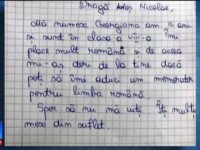 Dragă Moș Nicolae,
Mă numesc Georgiana am ani
și sunt în clasa a VIII-a Îmi
place mult română și de aceea
mi-aș dori de la tine dacă
poți să îmi aduci un memorator
pentru limba română
Sper să nu mă uiți Îți mulțu
mesc din suflet.